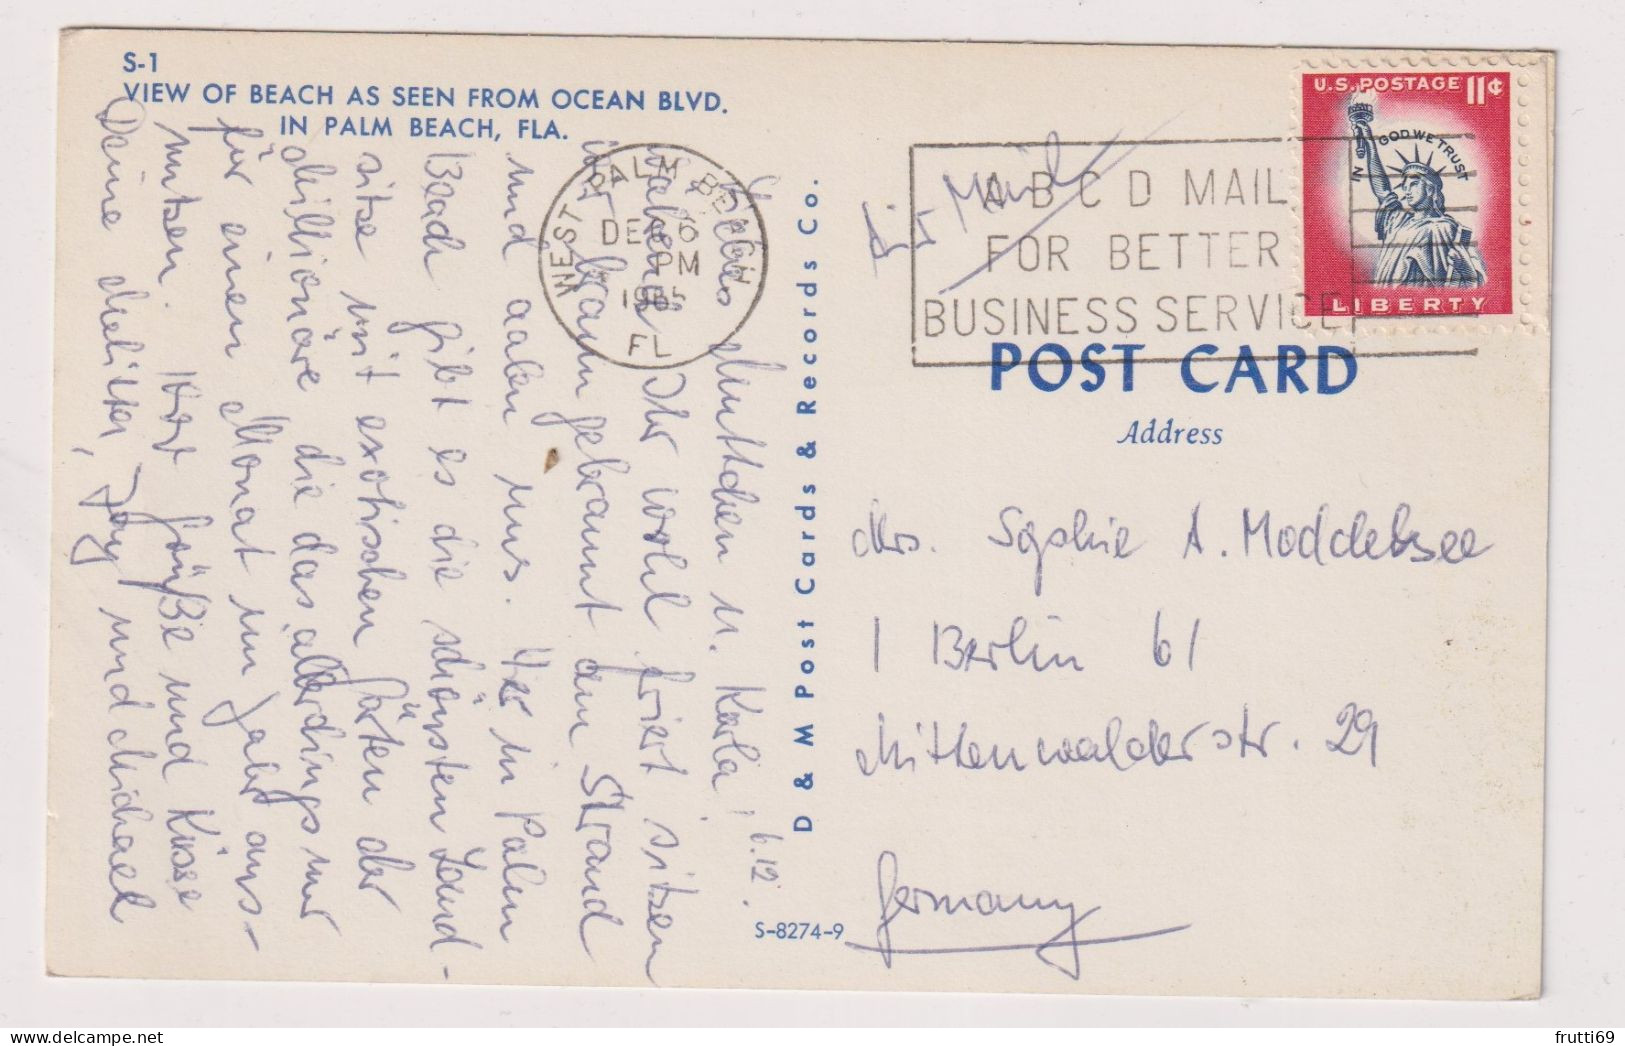 S-1
VIEW OF BEACH AS SEEN FROM OCEAN BLVD.
IN PALM BEACH, FLA.
Muttchen u. Karla! 6.12.
Ihr wohl friert sitzen
wir braun gebrannt am Strand
und aalen uns. Hier in Palm
Beach gibt es die schönsten Land-
sitze mit exotischen Gärten der
Millionäre die das allerdings nur
für einen Monat im Jahr aus-
nutzen. Herzl. Grüße und Küsse
Deine Melitta, und Michael
WEST PALM BEACH
DEC 6
PM
1965
FL
D & W Post Cards & Records Co.
S-8274-9
Air Mail
A B C D MAIL
FOR BETTER
BUSINESS SERVICE
U.S. POSTAGE 11¢
IN GOD WE TRUST
LIBERTY
POST CARD
Address
Mrs. Sophie A. Moddelsee
1 Berlin 61
Mittenwalderstr. 29
Germany
delcampe.net
frutti69